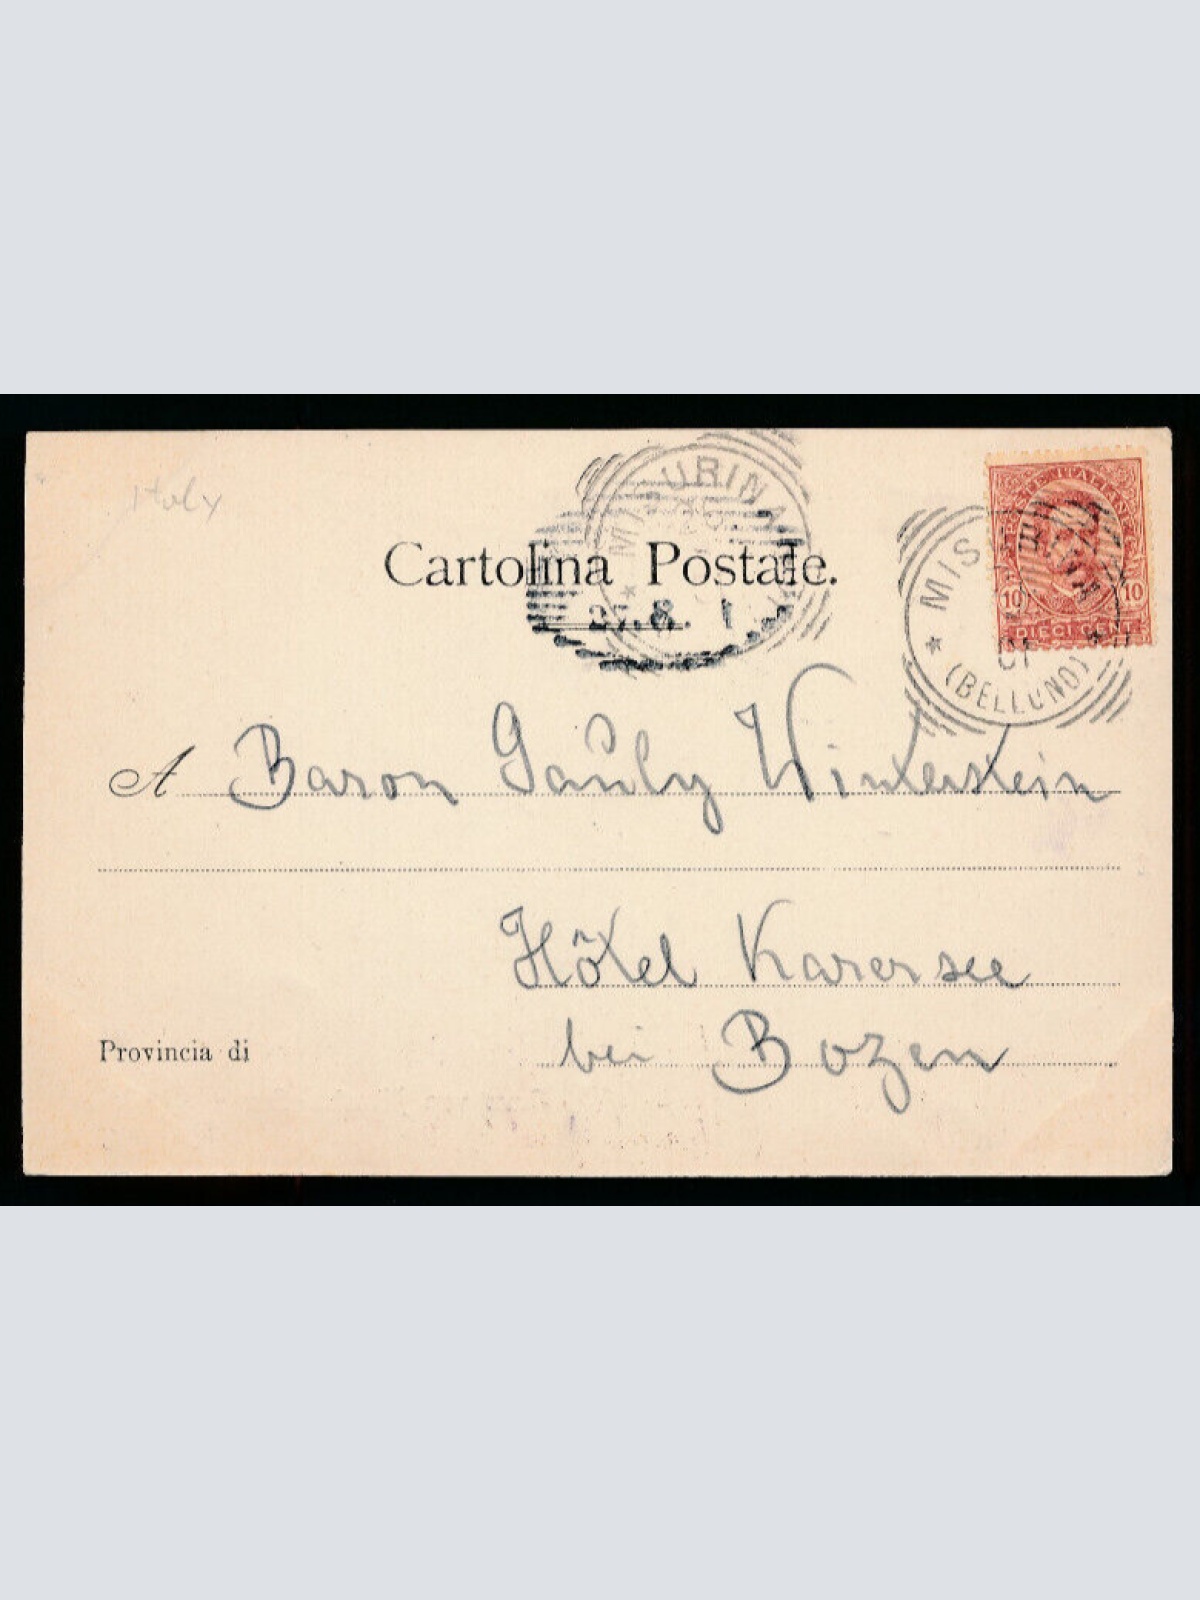 Italy
MISURINA
POSTE ITALIANE
Cartolina Postale.
10 10
DIECI CENT.
27.8. 1
01
(BELLUNO)
A Baron Pauly Winterstein
Hôtel Karersee
Provincia di bei Bozen